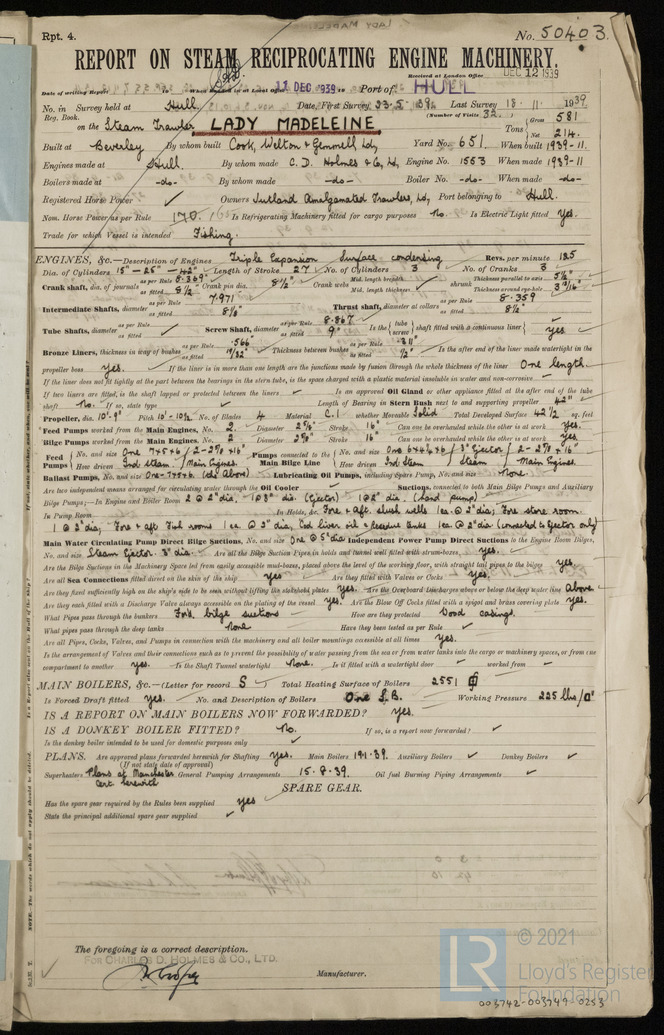 LADY MADELEINE
Rpt. 4.
No. 50403.
REPORT ON STEAM RECIPROCATING ENGINE MACHINERY.
Received at London Office DEC 12 1939
Date of writing Report When handed in at Local Office 11 DEC 1939 Port of HULL
No. in Survey held at Hull. Date, First Survey 23-5-39. Last Survey 18-11-1939
Reg. Book. (Number of Visits 32.)
on the Steam Trawler LADY MADELEINE Tons Gross 581 Net 214.
Built at Beverley By whom built Cook, Welton & Gemmell Ld, Yard No. 651. When built 1939-11.
Engines made at Hull. By whom made C. D. Holmes & Co, Ld, Engine No. 1553 When made 1939-11
Boilers made at -do- By whom made -do- Boiler No. -do- When made -do-
Registered Horse Power Owners Jutland Amalgamated Trawlers, Ld, Port belonging to Hull.
Nom. Horse Power as per Rule 170. Is Refrigerating Machinery fitted for cargo purposes No. Is Electric Light fitted Yes.
Trade for which Vessel is intended Fishing.
ENGINES, &c.—Description of Engines Triple Expansion Surface condensing Revs. per minute 125
Dia. of Cylinders 15"-25"-42" Length of Stroke 27 No. of Cylinders 3 No. of Cranks 3
Crank shaft, dia. of journals as per Rule 8.359" as fitted 8 1/2" Crank pin dia. 8 1/2" Crank webs Mid. length breadth Mid. length thickness shrunk Thickness parallel to axis 5 1/2" Thickness around eye-hole 3 9/16"
Intermediate Shafts, diameter as per Rule 7.971 as fitted 8 1/8" Thrust shaft, diameter at collars as per Rule 8.359 as fitted 8 1/2"
Tube Shafts, diameter as per Rule as fitted Screw Shaft, diameter as per Rule 8.867 as fitted 9" Is the {tube screw} shaft fitted with a continuous liner Yes
Bronze Liners, thickness in way of bushes as per Rule .566 as fitted 19/32" Thickness between bushes as per Rule as fitted 1/2" Is the after end of the liner made watertight in the
propeller boss Yes. If the liner is in more than one length are the junctions made by fusion through the whole thickness of the liner One length.
If the liner does not fit tightly at the part between the bearings in the stern tube, is the space charged with a plastic material insoluble in water and non-corrosive
If two liners are fitted, is the shaft lapped or protected between the liners Is an approved Oil Gland or other appliance fitted at the after end of the tube
shaft No. If so, state type Length of Bearing in Stern Bush next to and supporting propeller 42"
Propeller, dia. 10'-9" Pitch 10'-10 1/2 No. of Blades 4 Material C.I. whether Moveable Solid Total Developed Surface 42 1/2 sq. feet
Feed Pumps worked from the Main Engines, No. 2. Diameter 2 5/8" Stroke 16" Can one be overhauled while the other is at work Yes.
Bilge Pumps worked from the Main Engines, No. 2 Diameter 2 5/8" Stroke 16" Can one be overhauled while the other is at work Yes.
Feed Pumps No. and size One 7x5x6 / 2-2 5/8x16" How driven Ind Steam / Main Engines. Pumps connected to the Main Bilge Line No. and size How driven Ind Steam / Steam / Main Engines.
Ballast Pumps, No. and size Lubricating Oil Pumps, including Spare Pump, No. and size None.
Are two independent means arranged for circulating water through the Oil Cooler Suctions, connected to both Main Bilge Pumps and Auxiliary
Bilge Pumps;—In Engine and Boiler Room 2 @ 2" dia. 1@3" dia. (Ejector) 1@2" dia. (hand pump)
In Pump Room In Holds, &c. Fore & aft. slush wells 1ea @ 2" dia; Fore store room
1 @ 2" dia; Fore & aft Fish rooms 1ea @ 2" dia, Cod liver oil & reserve bunks 1ea @ 2" dia (connected to Ejector only)
Main Water Circulating Pump Direct Bilge Suctions, No. and size One @ 5" dia Independent Power Pump Direct Suctions to the Engine Room Bilges,
No. and size Steam Ejector 3" dia. Are all the Bilge Suction Pipes in holds and tunnel well fitted with strum-boxes Yes.
Are the Bilge Suctions in the Machinery Space led from easily accessible mud-boxes, placed above the level of the working floor, with straight tail pipes to the bilges Yes.
Are all Sea Connections fitted direct on the skin of the ship Yes Are they fitted with Valves or Cocks Yes.
Are they fixed sufficiently high on the ship's side to be seen without lifting the stokehold plates Yes. Are the Overboard Discharges above or below the deep water line Above.
Are they each fitted with a Discharge Valve always accessible on the plating of the vessel Yes. Are the Blow Off Cocks fitted with a spigot and brass covering plate Yes.
What Pipes pass through the bunkers Ford. bilge suctions How are they protected Wood casings.
What pipes pass through the deep tanks None Have they been tested as per Rule
Are all Pipes, Cocks, Valves, and Pumps in connection with the machinery and all boiler mountings accessible at all times Yes.
Is the arrangement of Valves and their connections such as to prevent the possibility of water passing from the sea or from water tanks into the cargo or machinery spaces, or from one
compartment to another Yes. Is the Shaft Tunnel watertight None. Is it fitted with a watertight door worked from
MAIN BOILERS, &c.—(Letter for record S) Total Heating Surface of Boilers 2551
Is Forced Draft fitted Yes. No. and Description of Boilers One S.B. Working Pressure 225 lbs/□"
IS A REPORT ON MAIN BOILERS NOW FORWARDED? Yes.
IS A DONKEY BOILER FITTED? No. If so, is a report now forwarded?
Is the donkey boiler intended to be used for domestic purposes only
PLANS. Are approved plans forwarded herewith for Shafting Yes. Main Boilers 19.1.39. Auxiliary Boilers Donkey Boilers
(If not state date of approval)
Superheaters Plans at Manchester Cert. herewith General Pumping Arrangements 15.8.39. Oil fuel Burning Piping Arrangements
SPARE GEAR.
Has the spare gear required by the Rules been supplied Yes
State the principal additional spare gear supplied
The foregoing is a correct description.
FOR CHARLES D. HOLMES & CO., LTD.
Manufacturer.
© 2021
LR Lloyd's Register
Foundation
003742-003749-0253